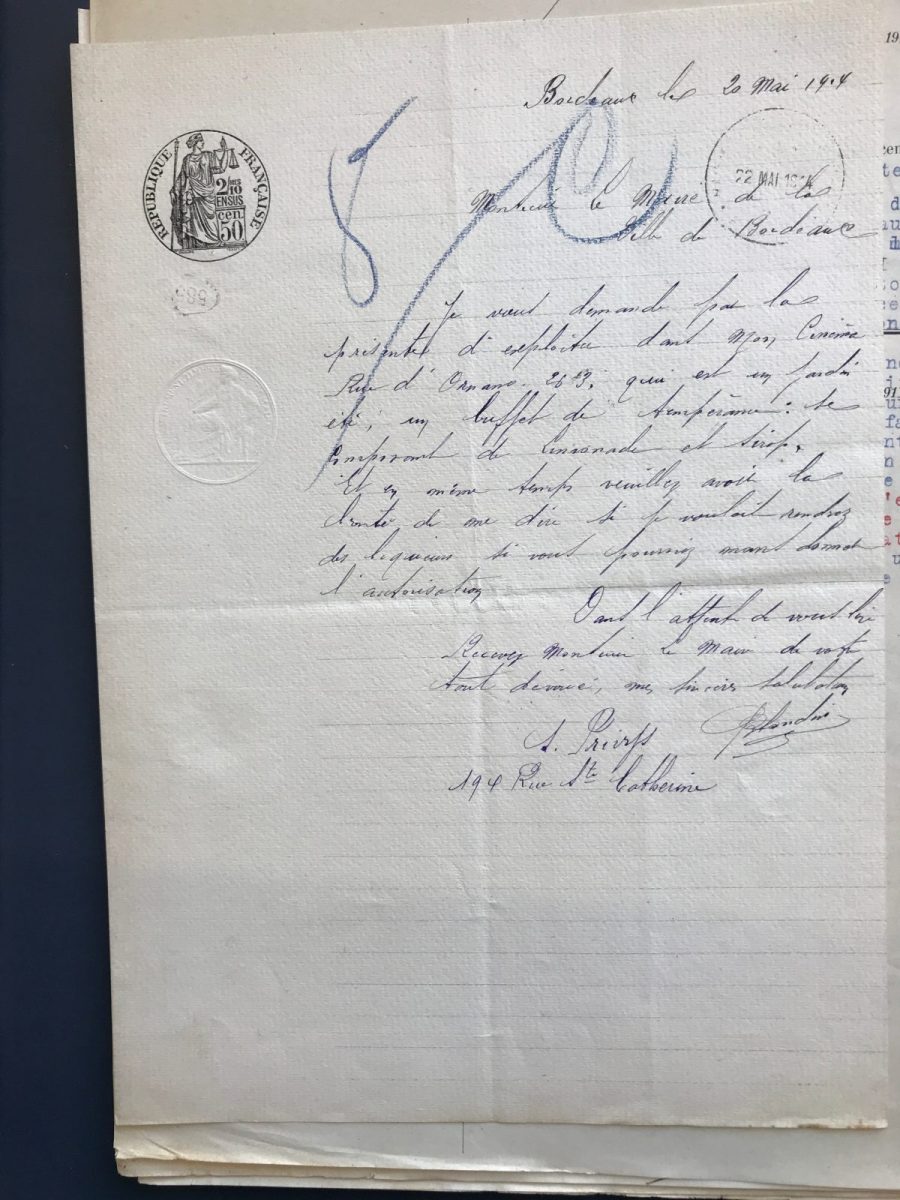 Bordeaux le 20 Mai 1914
RÉPUBLIQUE FRANÇAISE
2/10 EN SUS
50 cen.
22 MAI 1914
583
Monsieur le Maire de la
Ville de Bordeaux
Je vous demande par la
présente d'exploiter dans mon Cinéma
Rue d'Ornano. qui est un jardin
été, un buffet de tempérance: se
composant de Limonade et sirop.
Et en même temps veuillez avoir la
bonté de me dire si je voulait vendre
des liqueurs si vous pourriez
l'autorisation
Dans l'attente de vous lire
Recevez Monsieur le Maire de votre
tout dévoué, mes sincères salutations
A.
194 Rue Ste Catherine